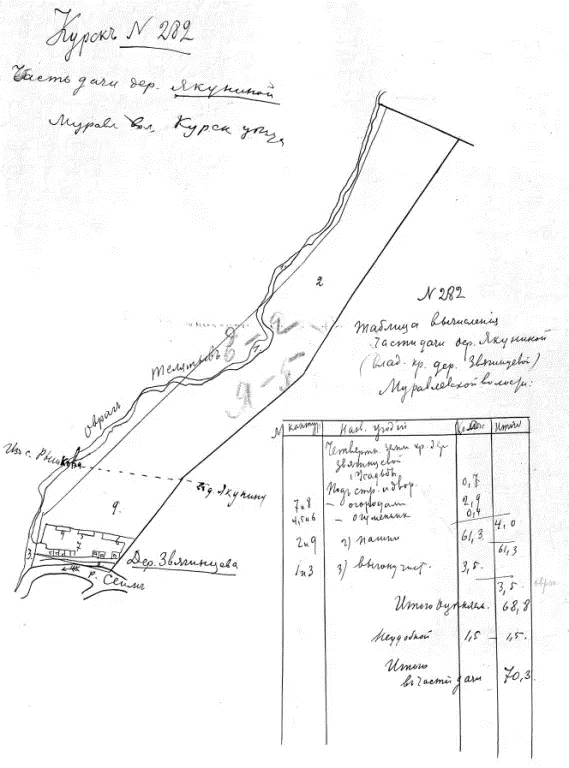 Курскъ N 282
Часть дачи дер. Якуниной
Муравл вол. Курск уѣзда
2
N 282
Таблица вычисленія
Части дачи дер. Якуниной
(влад. кр. дер. Звягинцевой)
Муравлевской волости:
8-2
Я-5
Оврагъ Телятниковъ
Изъ с. Рышкова
въ д. Якунину
9.
7
3.
Дер. Звягинцева
Р. Сеймъ
N контур. Назв. угодій Колич. Итого
Четвертн. земли кр. дер
Звягинцевой
1) Усадьбы
Подъ стр. и двор. 0,7
7 и 8 — огородами 2,9
4,5 и 6 — огуменник 0,4
4,0
2 и 9 2) пашни 61,3
61,3
1 и 3 3) выгону чист. 3,5.
3,5.
Итого 68,8
Неудобной 1,5 — 1,5.
Итого
въ части дачи 70,3